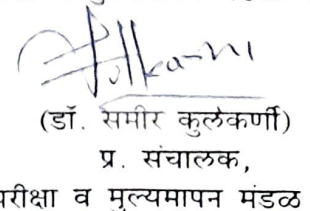 (डॉ. समीर कुलकर्णी)
प्र. संचालक,
परीक्षा व मुल्यमापन मंडळ